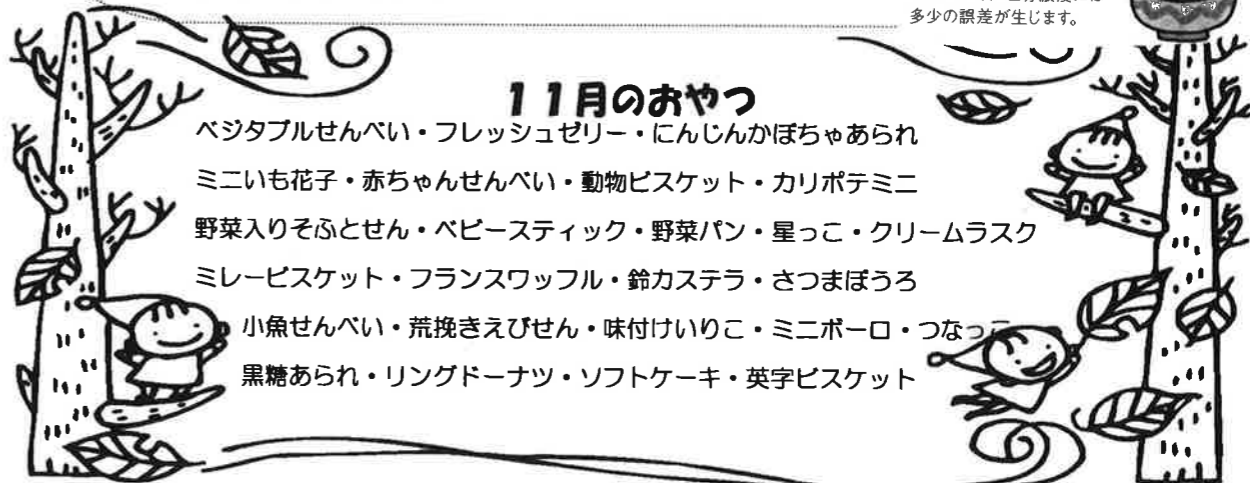 多少の誤差が生じます。
11月のおやつ
ベジタブルせんべい・フレッシュゼリー・にんじんかぼちゃあられ
ミニいも花子・赤ちゃんせんべい・動物ビスケット・カリポテミニ
野菜入りそふとせん・ベビースティック・野菜パン・星っこ・クリームラスク
ミレービスケット・フランスワッフル・鈴カステラ・さつまぼうろ
小魚せんべい・荒挽きえびせん・味付けいりこ・ミニボーロ・つなっこ
黒糖あられ・リングドーナツ・ソフトケーキ・英字ビスケット